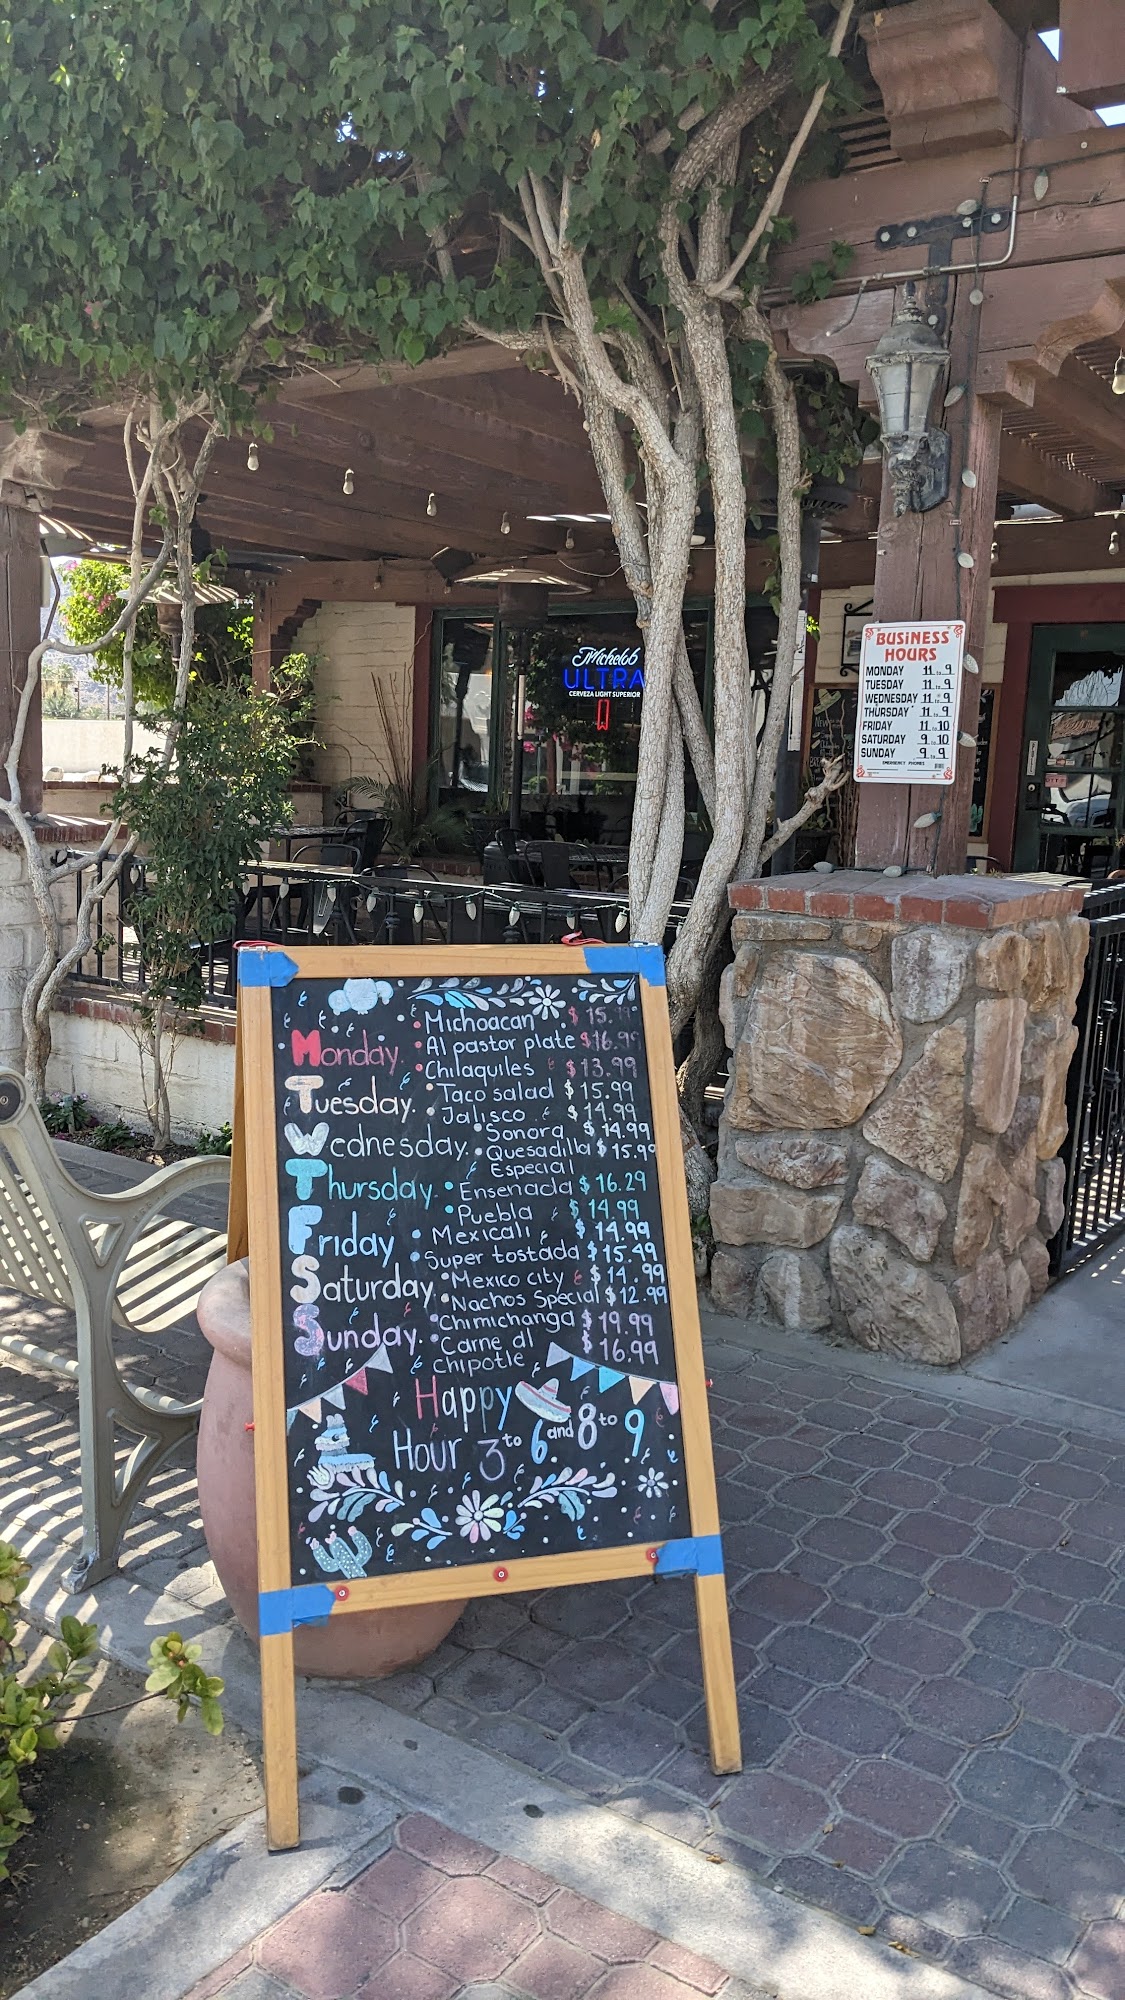 Michelob
ULTRA
CERVEZA LIGHT SUPERIOR
BUSINESS
HOURS
MONDAY 11 to 9
TUESDAY 11 to 9
WEDNESDAY 11 to 9
THURSDAY 11 to 9
FRIDAY 11 to 10
SATURDAY 9 to 10
SUNDAY 9 to 9
EMERGENCY PHONES
Michoacan $15.99
Monday. Al pastor plate $16.99
Chilaquiles $13.99
Tuesday. Taco salad $15.99
Jalisco $14.99
Wednesday. Sonora $14.99
Quesadilla $15.99
Especial
Thursday. Ensenada $16.29
Puebla $14.99
Friday Mexicali $14.99
Super tostada $15.49
Saturday. Mexico city $14.99
Nachos Special $12.99
Sunday. Chimichanga $19.99
Carne al $16.99
Chipotle
Happy
Hour 3 to 6 and 8 to 9